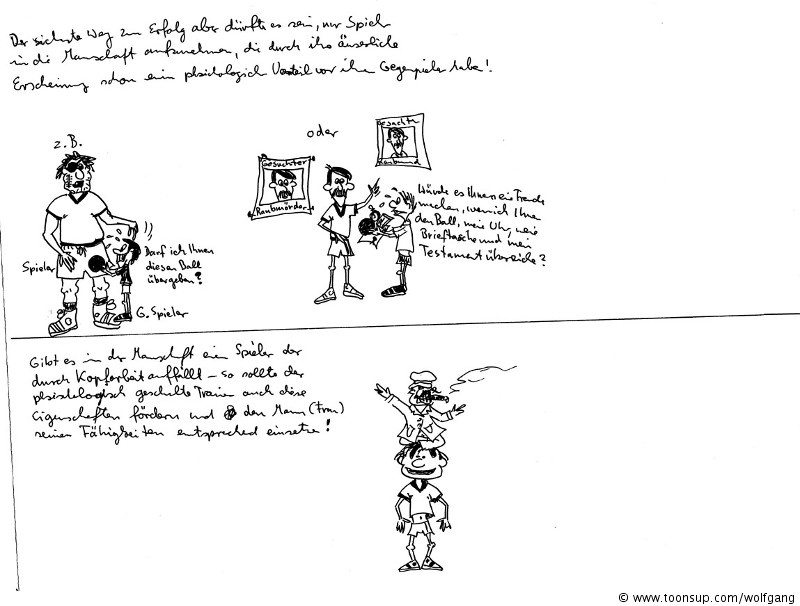 Der sicherste Weg zum Erfolg aber dürfte es sein, nur Spieler
in die Manschaft aufzunehmen, die durch ihre äuserliche
Erscheinung schon ein phsichologisch Vorteil vor ihrem Gegenspieler haben!
z.B.
oder
Gesuchter
Raubmörder
Gesuchter
Raubmörd
Spieler
Darf ich Ihnen
diesen Ball
übergeben?
G. Spieler
Würde es Ihnen eine Freude
machen, wenn ich Ihnen
den Ball, meine Uhr, meine
Brieftasche und mein
Testament überreiche?
Gibt es in der Manschaft einen Spieler der
durch Kopfarbeit auffällt – so sollte der
geschulte Trainer auch diese
Eigenschaften fördern und den Mann (Frau)
seinen Fähigkeiten entsprechend einsetzen!
© www.toonsup.com/wolfgang